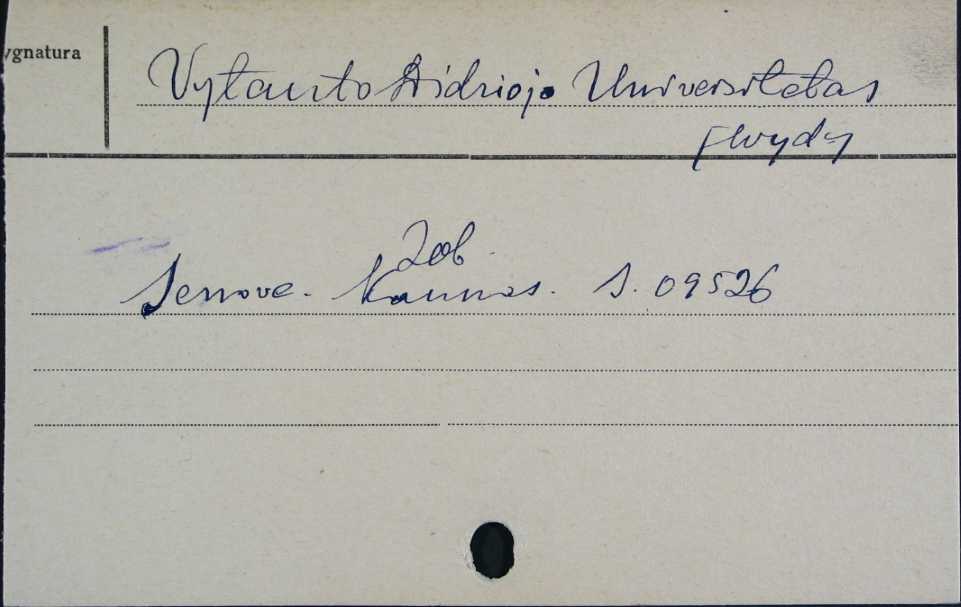 ygnatura
Vytauto Didziojo Universitetas
(wyd.)
Zob.
Senove. Kaunas. S. 09526